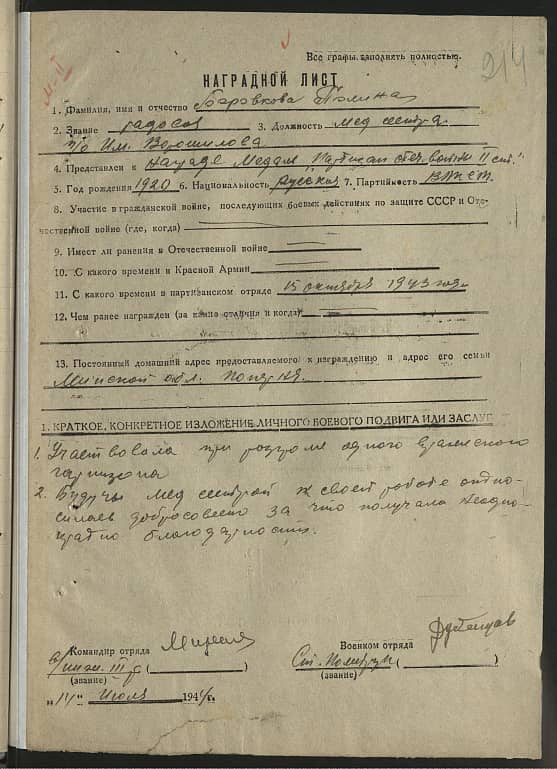 214
Все графы заполнять полностью.
НАГРАДНОЙ ЛИСТ
1. Фамилия, имя и отчество Боровкова Полина
2. Звание рядовой 3. Должность мед сестра
п/о Им. Ворошилова
4. Представлен к награде Медали "Партизан отеч. войны II ст."
5. Год рождения 1920 6. Национальность Русская 7. Партийность ВЛКСМ
8. Участие в гражданской войне, последующих боевых действиях по защите СССР и Оте-
чественной войне (где, когда)
9. Имеет ли ранения в Отечественной войне
10. С какого времени в Красной Армии
11. С какого времени в партизанском отряде 15 октября 1943 года
12. Чем ранее награжден (за какие отличия и когда)
13. Постоянный домашний адрес предоставляемого к награждению и адрес его семьи
Минской обл.
1. КРАТКОЕ, КОНКРЕТНОЕ ИЗЛОЖЕНИЕ ЛИЧНОГО БОЕВОГО ПОДВИГА ИЛИ ЗАСЛУГ
1. Участвовала при разгроме одного вражеского
гарнизона
2. Будучи мед сестрой к своей работе отно-
силась добросовесно за что получала неодно-
кратно благодарность.
Командир отряда
Военком отряда
()
Ст. Политрук ()
(звание)
(звание)
"14" Июля 1944г.